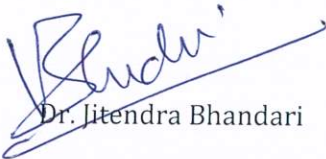 Dr. Jitendra Bhandari